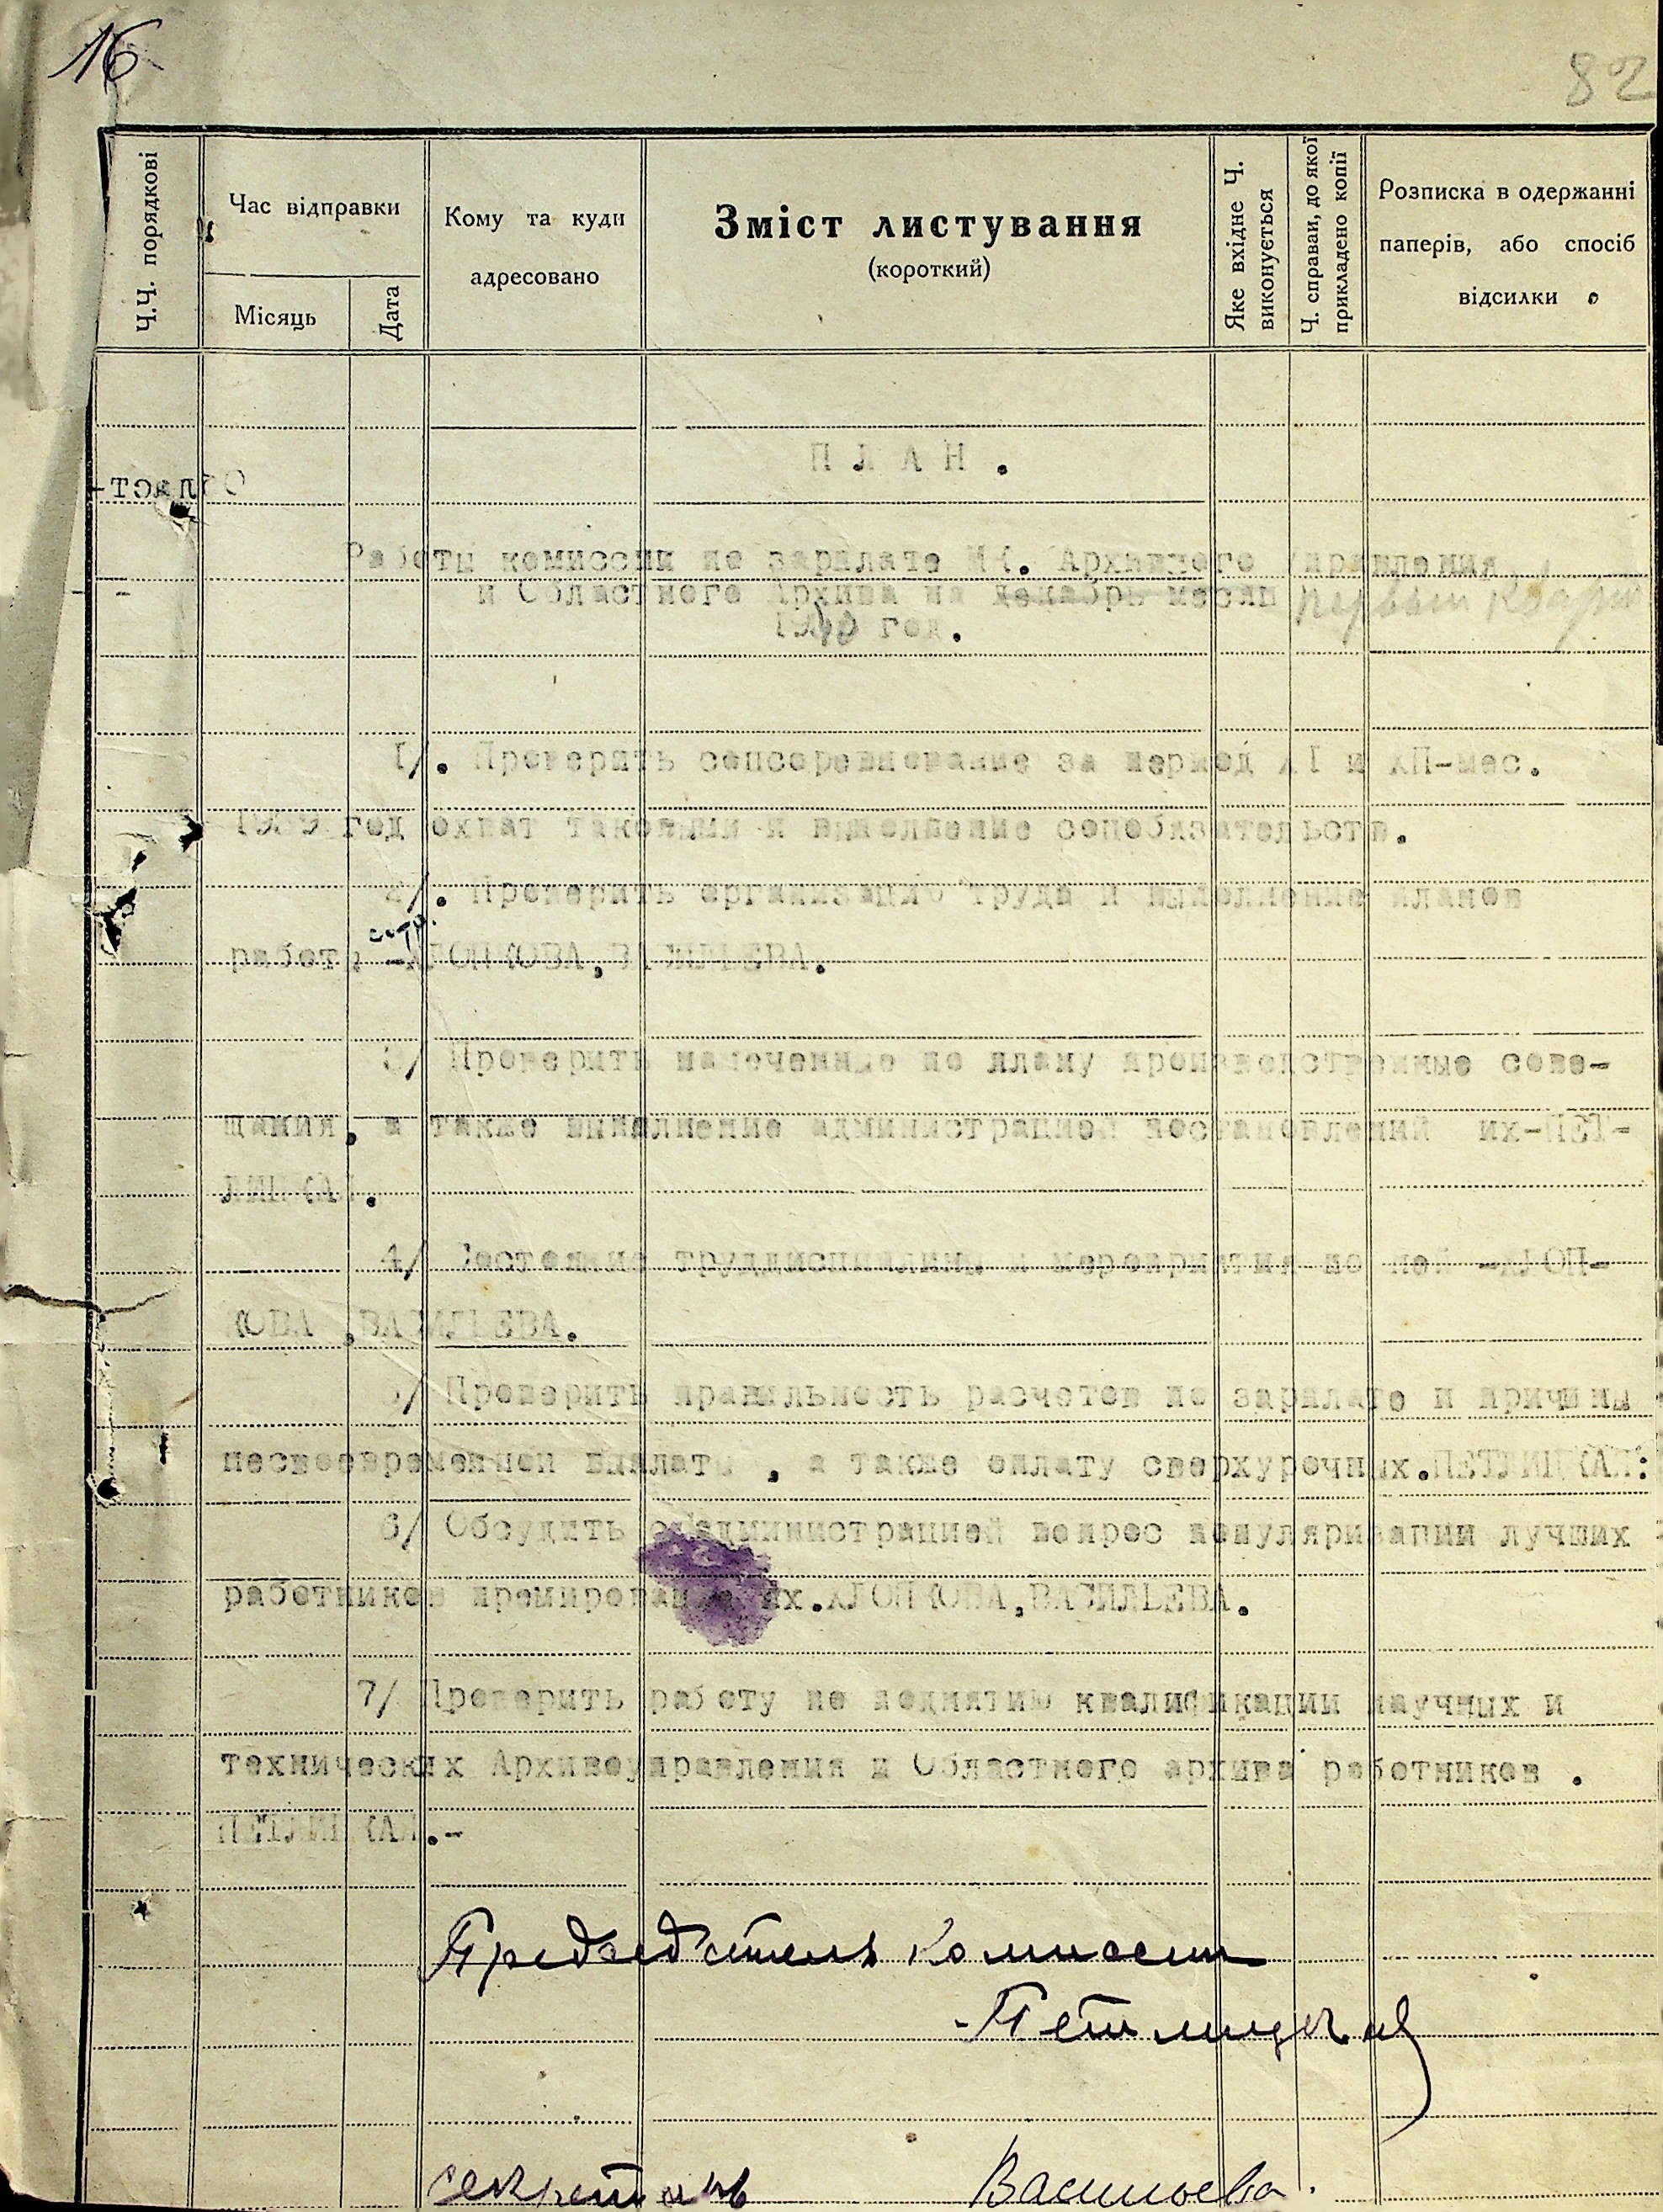 16
82
Ч.Ч. порядкові
Час відправки
Місяць
Дата
Кому та куди
адресовано
Зміст листування
(короткий)
Яке вхідне Ч.
виконується
Ч. справи, до якої
прикладено копії
Розписка в одержанні
паперів, або спосіб
відсилки
П Л А Н .
Работы комиссии по зарплате МК. Архивного Управления
и Областного Архива на декабрь месяц первый квар
год.
1/. Проверить соцсоревнование за период XI и XII-мес.
1939 год охват таковыми и выполнение соцобязательств.
2/. Проверить организацию труда и выполнение планов
сотр.
работы -ХЛОПКОВА, ВАСИЛЬЕВА.
3/ Проверить намеченные по плану производственные сове-
щания, а также выполнение администрацией постановлений их-ПЕТ-
ЛИЦКАЯ.
4/ Состояние труддисциплины и мероприятия по ней -ХЛОП-
КОВА ,ВАСИЛЬЕВА.
5/ Проверить правильность расчетов по зарплате и причины
несвоевременной выплаты , а также оплату сверхурочных.ПЕТЛИЦКАЯ:
6/ Обсудить с администрацией вопрос популяризации лучших
работников премирования их.ХЛОПКОВА,ВАСИЛЬЕВА.
7/ Проверить работу по поднятию квалификации научных и
технических Архивоуправления и Областного архива работников .
ПЕТЛИЦКАЯ.-
Председатель комиссии
-Петлицкая
секретарь Васильева.